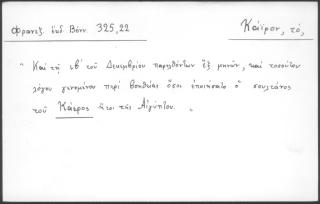 Φραντζ. ἐκδ. Βόνν. 325,22
Κάϊρον, τό,
" Καὶ τῇ ιθ' τοῦ Δεκεμβρίου παρελθόντων ἓξ μηνῶν, καὶ τοσούτου
λόγου γενομένου περὶ βοηθείας ὅσοι ἐποιήσατο ὁ σουλτάνος
τοῦ Κάερος ἤτοι τῆς Αἰγύπτου. "